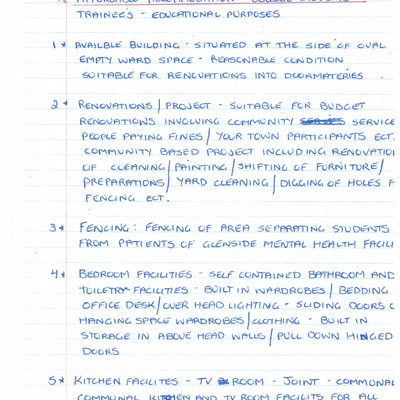 TRAINEES - EDUCATIONAL PURPOSES
1* AVAILBLE BUILDING - SITUATED AT THE SIDE OF OVAL
EMPTY WARD SPACE - REASONABLE CONDITION
SUITABLE FOR RENOVATIONS INTO DOORMATERIES
2* RENOVATIONS/PROJECT - SUITABLE FOR BUDGET
RENOVATIONS INVOLVING COMMUNITY SERVICE
PEOPLE PAYING FINES/YOUR TOWN PARTICIPANTS ECT.
COMMUNITY BASED PROJECT INCLUDING RENOVATIO
OF CLEANING/PAINTING/SHIFTING OF FURNITURE/
PREPARATIONS/YARD CLEANING/DIGGING OF HOLES F
FENCING ECT.
3* FENCING: FENCING OF AREA SEPARATING STUDENTS
FROM PATIENTS OF GLENSIDE MENTAL HEALTH FACILI
4* BEDROOM FACILITIES - SELF CONTAINED BATHROOM AND
TOILETRY FACILITIES - BUILT IN WARDROBES/BEDDING
OFFICE DESK/OVER HEAD LIGHTING - SLIDING DOORS O
HANGING SPACE WARDROBES/CLOTHING - BUILT IN
STORAGE IN ABOVE HEAD WALLS/PULL DOWN HINGED
DOORS
5* KITCHEN FACILITES - TV ROOM - JOINT - COMMUNAL
COMMUNAL KITCHEN AND TV ROOM FACILITS FOR ALL